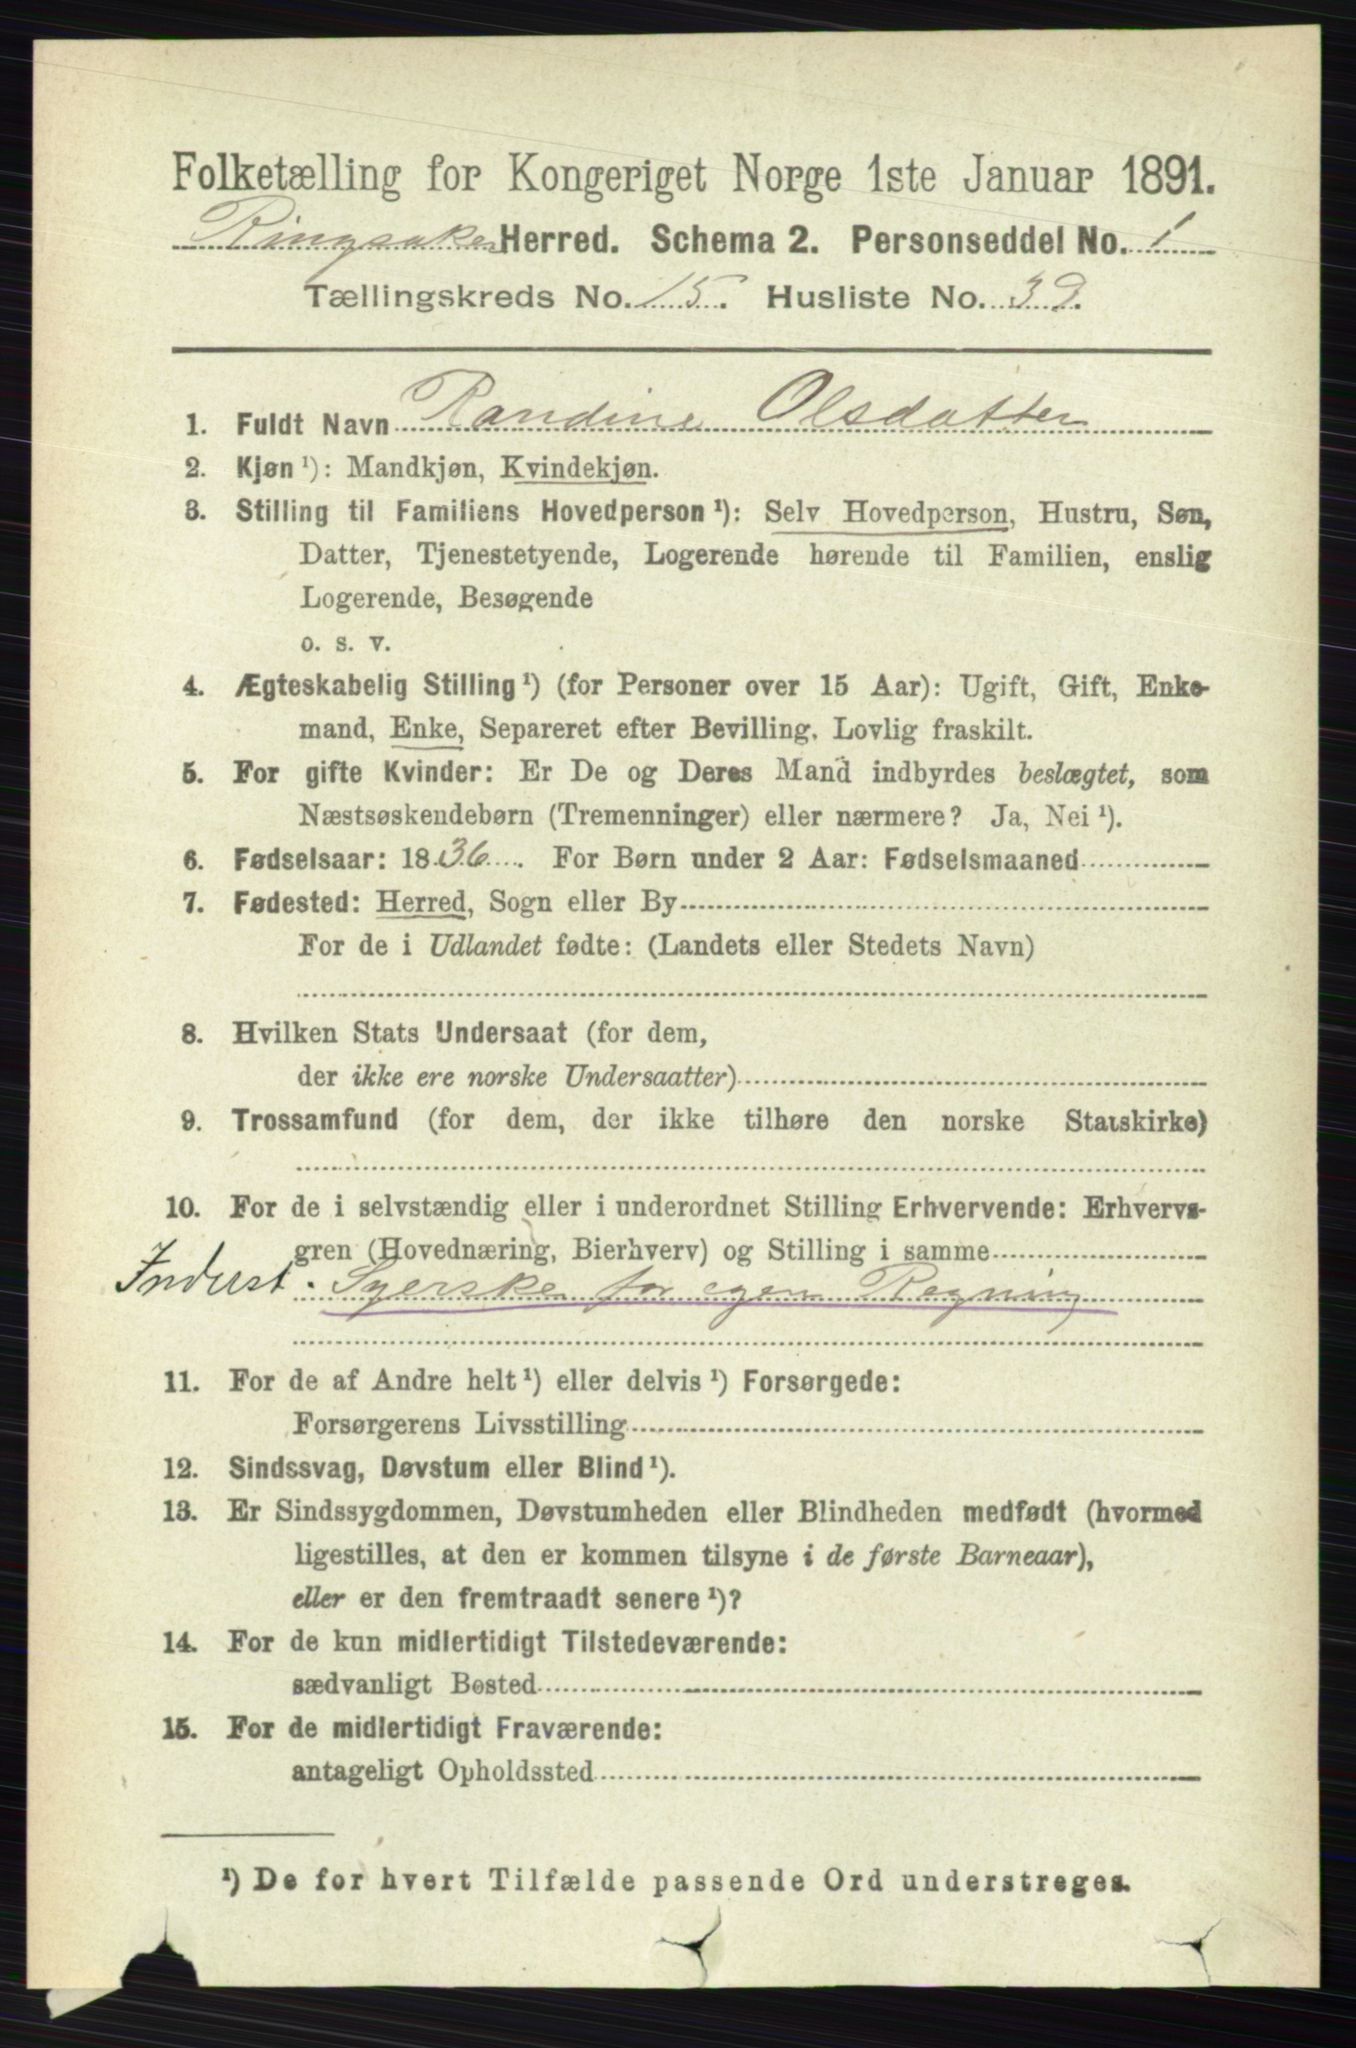 Folketælling for Kongeriget Norge 1ste Januar 1891.
Ringsaker Herred. Schema 2. Personseddel No. 1
Tællingskreds No. 15. Husliste No. 39.
1. Fuldt Navn Randine Olsdatter
2. Kjøn ¹): Mandkjøn, Kvindekjøn.
3. Stilling til Familiens Hovedperson ¹): Selv Hovedperson, Hustru, Søn,
Datter, Tjenestetyende, Logerende hørende til Familien, enslig
Logerende, Besøgende
o. s. v.
4. Ægteskabelig Stilling ¹) (for Personer over 15 Aar): Ugift, Gift, Enke-
mand, Enke, Separeret efter Bevilling. Lovlig fraskilt.
5. For gifte Kvinder: Er De og Deres Mand indbyrdes beslægtet, som
Næstsøskendebørn (Tremenninger) eller nærmere? Ja, Nei ¹).
6. Fødselsaar: 1836. For Børn under 2 Aar: Fødselsmaaned
7. Fødested: Herred, Sogn eller By
For de i Udlandet fødte: (Landets eller Stedets Navn)
8. Hvilken Stats Undersaat (for dem,
der ikke ere norske Undersaatter)
9. Trossamfund (for dem, der ikke tilhøre den norske Statskirke)
10. For de i selvstændig eller i underordnet Stilling Erhvervende: Erhvervs-
gren (Hovednæring, Bierhverv) og Stilling i samme
Inderst. Syerske for egen Regning
11. For de af Andre helt ¹) eller delvis ¹) Forsørgede:
Forsørgerens Livsstilling
12. Sindssvag, Døvstum eller Blind ¹).
13. Er Sindssygdommen, Døvstumheden eller Blindheden medfødt (hvormed
ligestilles, at den er kommen tilsyne i de første Barneaar),
eller er den fremtraadt senere ¹)?
14. For de kun midlertidigt Tilstedeværende:
sædvanligt Bosted
15. For de midlertidigt Fraværende:
antageligt Opholdssted
¹) De for hvert Tilfælde passende Ord understreges.